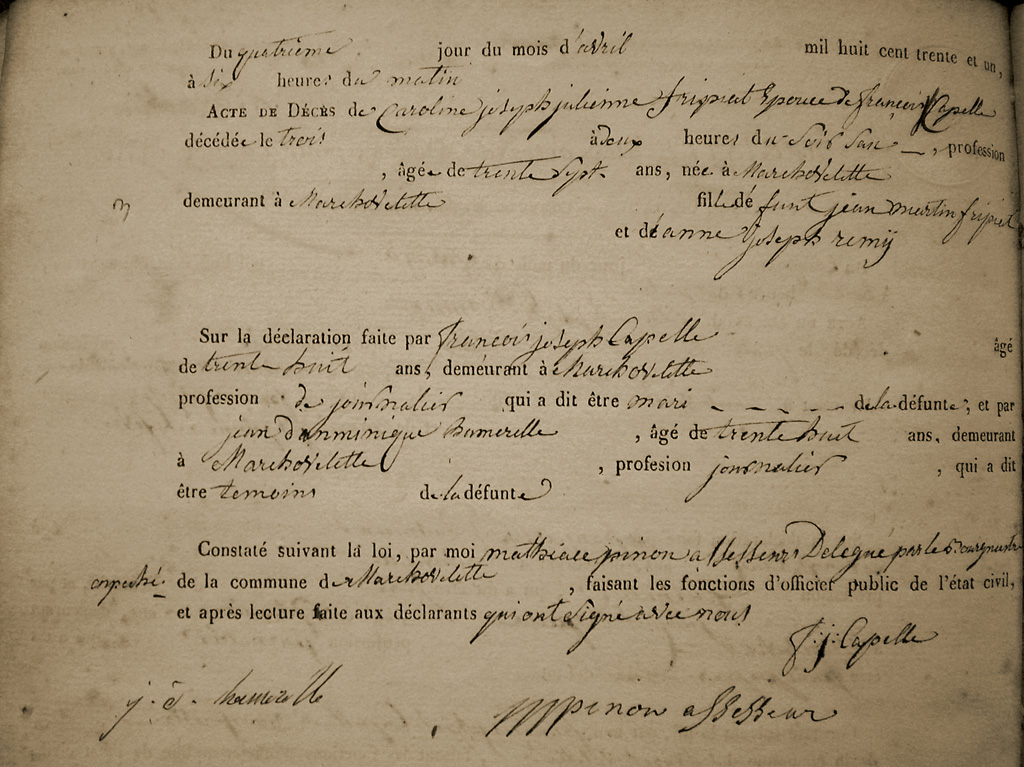 Du quatrième jour du mois d'avril mil huit cent trente et un,
à six heures du matin
ACTE DE DÉCÈS de Caroline joseph julienne fripiat Epouce de francois Capelle
décédée le trois à deux heures du Soir San — , profession
, âgée de trente Sept ans, née à Marchovelette
demeurant à Marchovelette fille de funt jean martin fripiat
et de anne joseph remÿ
Sur la déclaration faite par francois joseph Capelle âgé
de trente huit ans, demeurant à Marchovelette
profession de journalier qui a dit être mari - - - - - de la défunte, et par
jean domminique hamerelle , âgé de trente huit ans, demeurant
à Marchovelette , profesion journalier , qui a dit
être temoins de la défunte
Constaté suivant la loi, par moi mathieu pinon assesseurs Delegué par le Bourgmestre
empeché de la commune de Marchovelette , faisant les fonctions d'officier public de l'état civil,
et après lecture faite aux déclarants qui ont Signé avec nous
f: j: Capelle
j. d. hamerelle
pinon assesseur